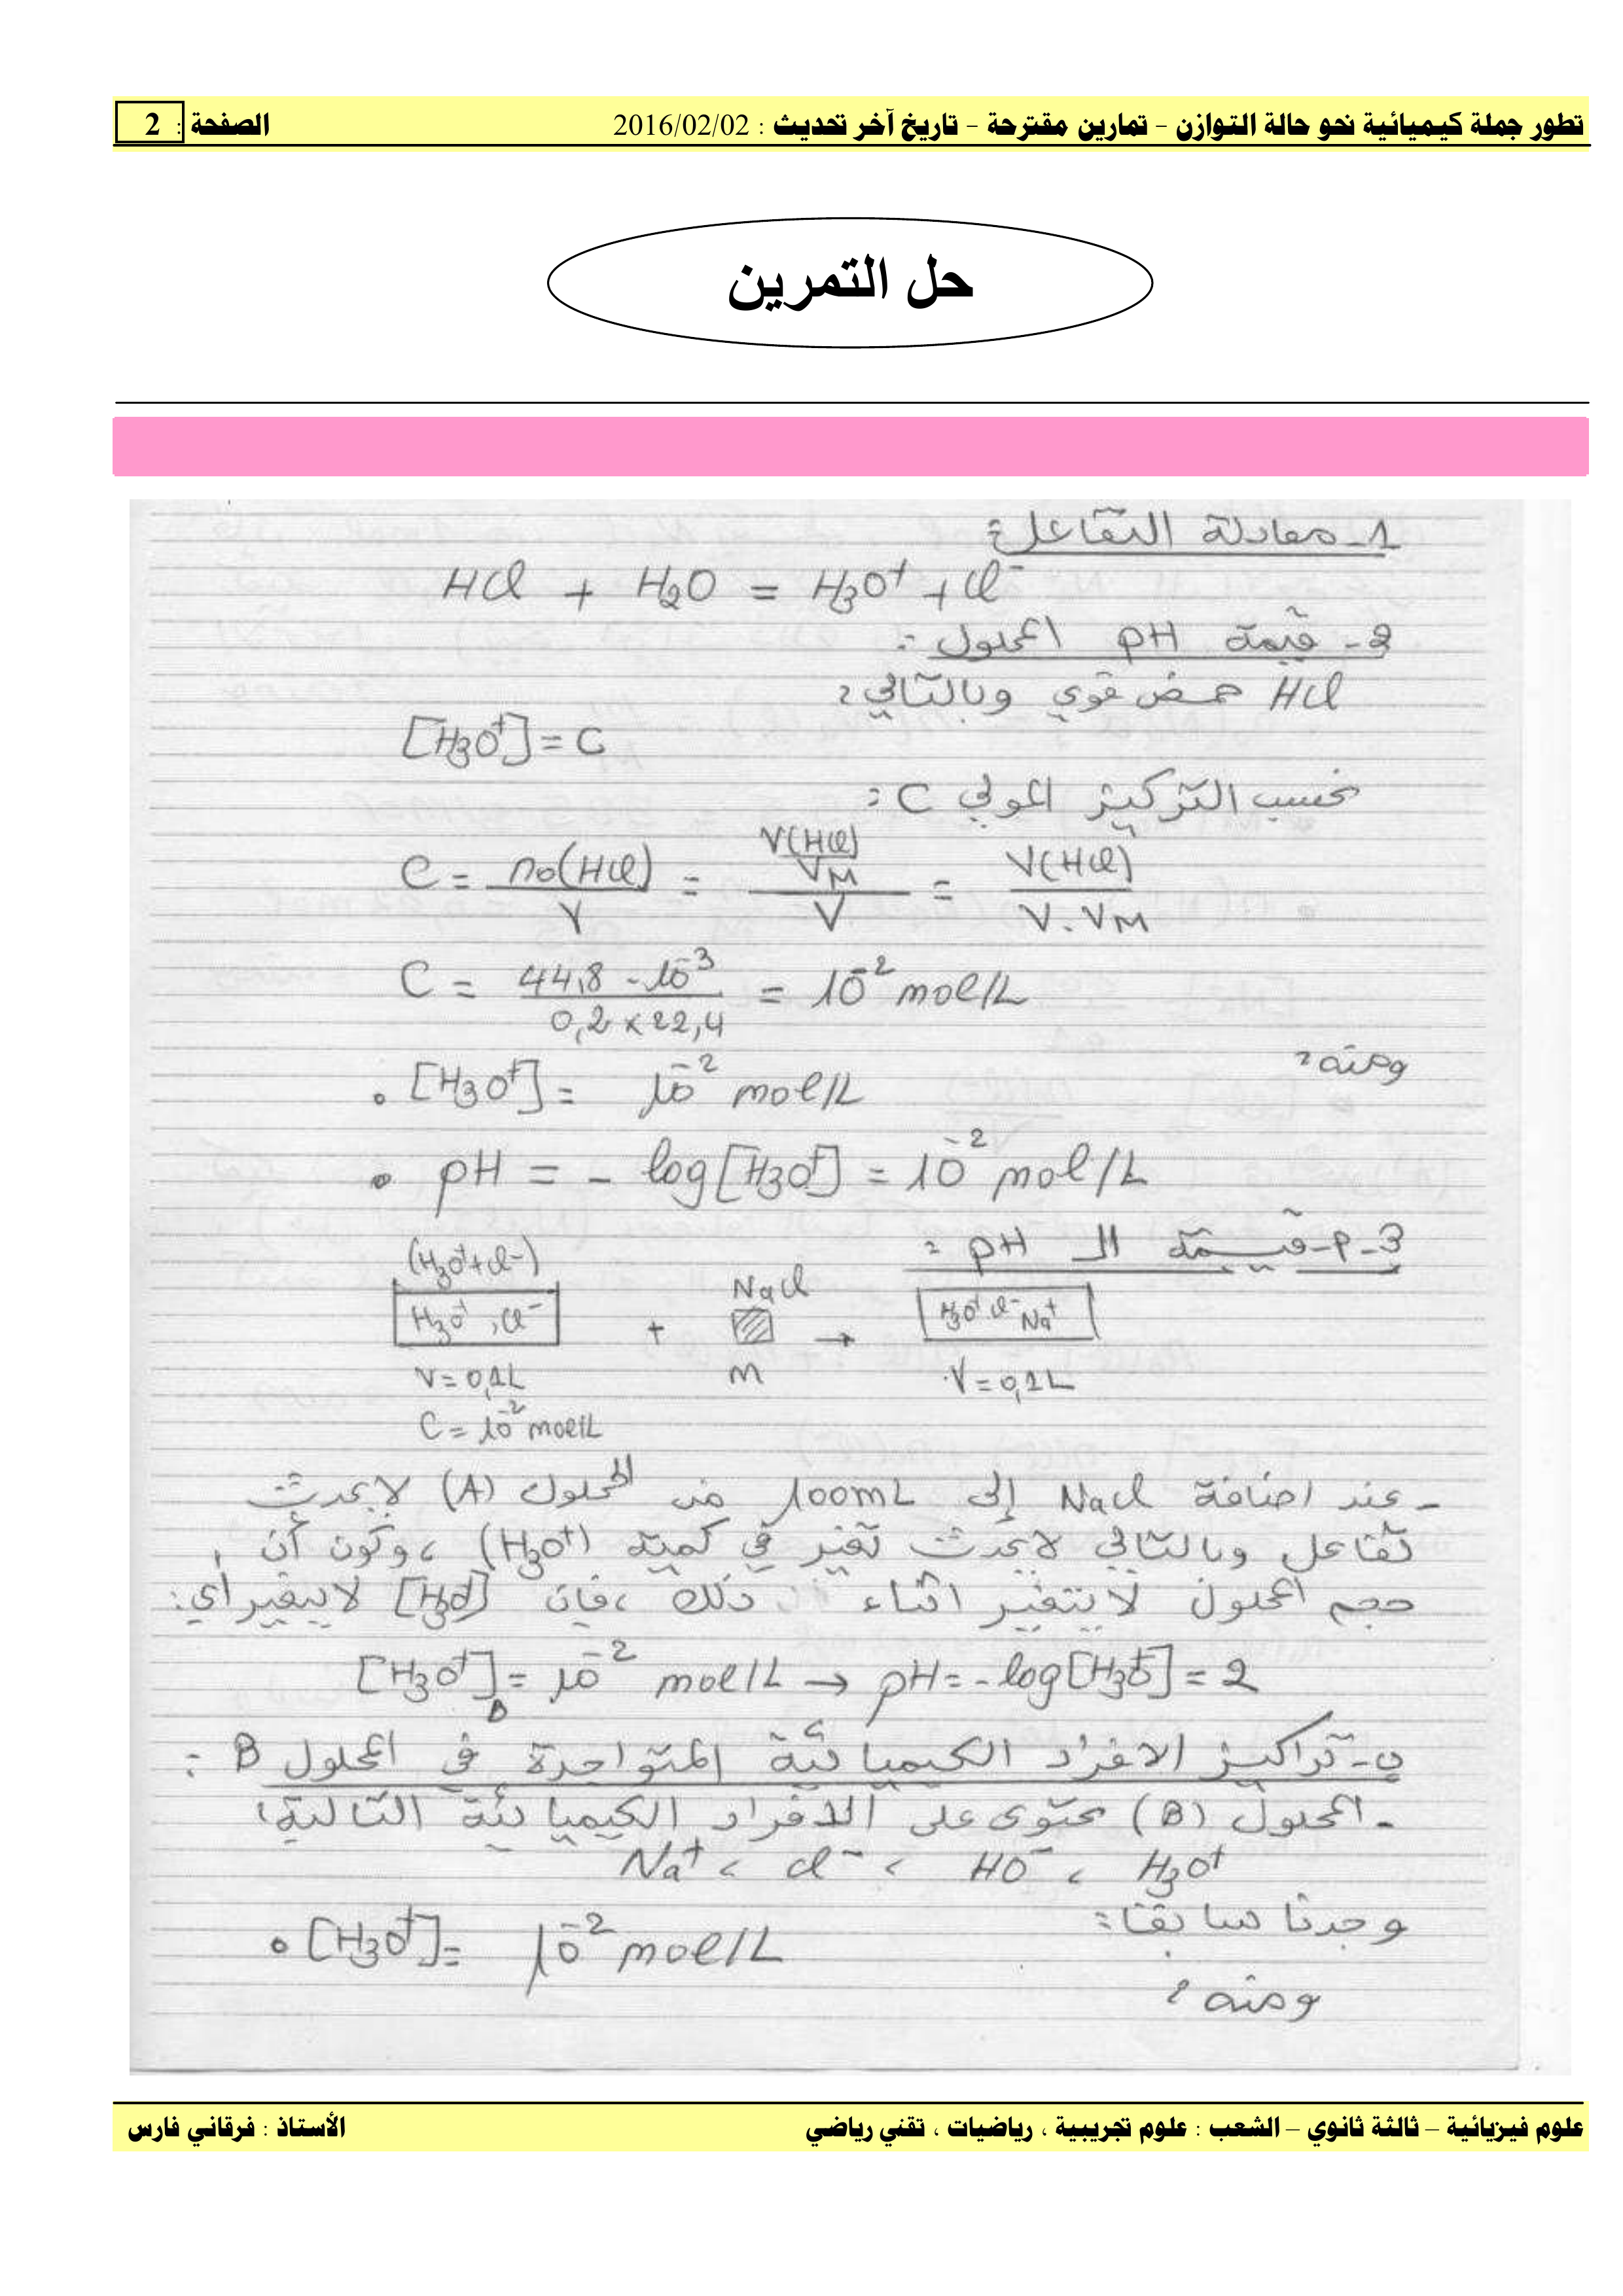 تطور جملة كيميائية نحو حالة التوازن – تمارين مقترحة – تاريخ آخر تحديث : 2016/02/02 الصفحة : 2
حل التمرين
1- معادلة التفاعل :
HCl + H2O = H3O+ + Cl-
2- قيمة pH المحلول :
HCl حمض قوي وبالتالي :
[H3O+] = C
نحسب التركيز المولي C :
C = no(HCl) / V = (V(HCl) / VM) / V = V(HCl) / V.VM
C = 44,8 . 10^-3 / 0,2 x 22,4 = 10^-2 mol/L
ومنه :
• [H3O+] = 10^-2 mol/L
• pH = - log[H3O+] = 10^-2 mol/L
3-أ- قيمة الـ pH :
(H3O+ + Cl-) NaCl
H3O+, Cl- + → H3O+ Cl- Na+
V = 0,1L m V = 0,1L
C = 10^-2 mol/L
- عند اضافة NaCl إلى 100mL من المحلول (A) لا يحدث
تفاعل وبالتالي لا يحدث تغير في كمية (H3O+) ، وكون أن
حجم المحلول لا يتغير اثناء ذلك ، فإن [H3O+] لا يتغير أي :
[H3O+]B = 10^-2 mol/L → pH = - log[H3O+] = 2
ب- تراكيز الافراد الكيميائية المتواجدة في المحلول B :
- المحلول (B) يحتوى على الافراد الكيميائية التالية :
H3O+ ، HO- ، Cl- ، Na+
وجدنا سابقا :
• [H3O+] = 10^-2 mol/L
ومنه :
علوم فيزيائية – ثالثة ثانوي – الشعب : علوم تجريبية ، رياضيات ، تقني رياضي الأستاذ : فرقاني فارس